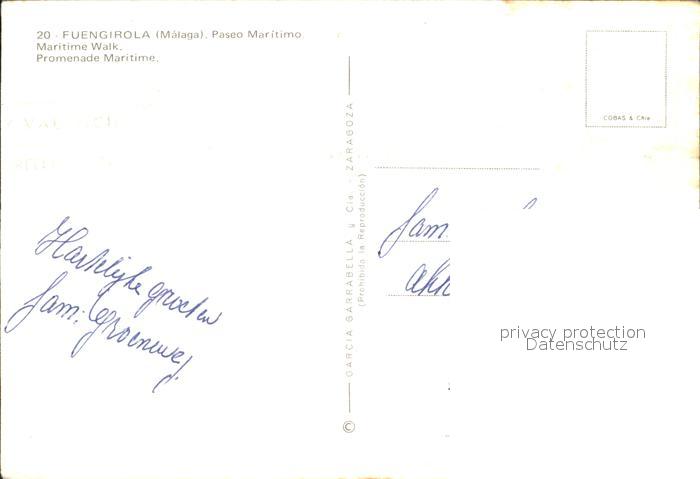 20 - FUENGIROLA (Málaga). Paseo Marítimo.
Maritime Walk.
Promenade Maritime.
COBAS & Cñia
GARCIA GARRABELLA y Cía. - ZARAGOZA
(Prohibida la Reproducción)
©
Hartelijke groeten
fam. Groeneweg.
fam.
privacy protection
Datenschutz